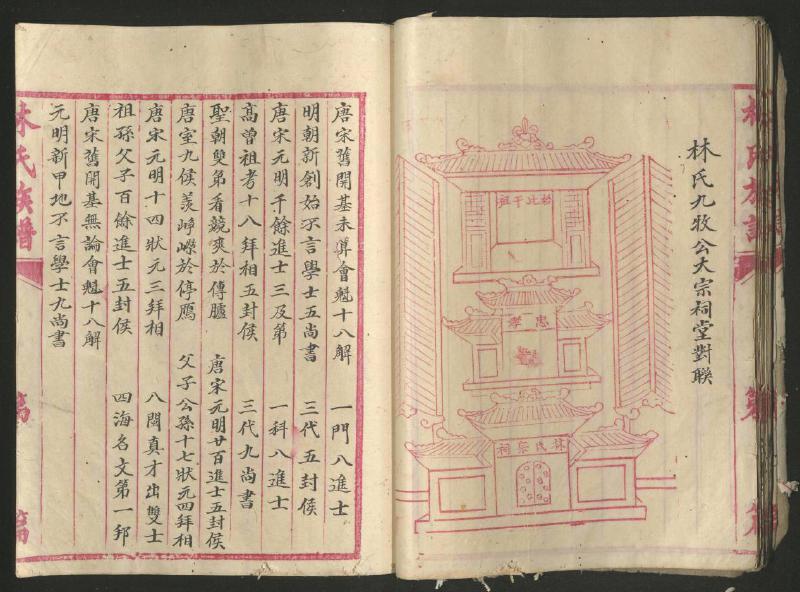 林氏九牧公大宗祠堂對聯
比干祖
忠孝
林氏宗祠
唐宋舊開基未算會魁十八解 一門八進士
明朝新創始不言學士五尚書 三代五封侯
唐宋元明千餘進士三及第 一科八進士
高曾祖考十八拜相五封侯 三代九尚書
聖朝雙第看競爽於傳臚 唐宋元明廿百進士五封侯
唐室九侯羨崢嶸於停鴈 父子公孫十七狀元四拜相
唐宋元明十四狀元三拜相 八閩真才出雙士
祖孫父子百餘進士五封侯 四海名文第一邦
唐宋舊開基無論會魁十八解
元明新甲地不言學士九尚書
林氏族譜